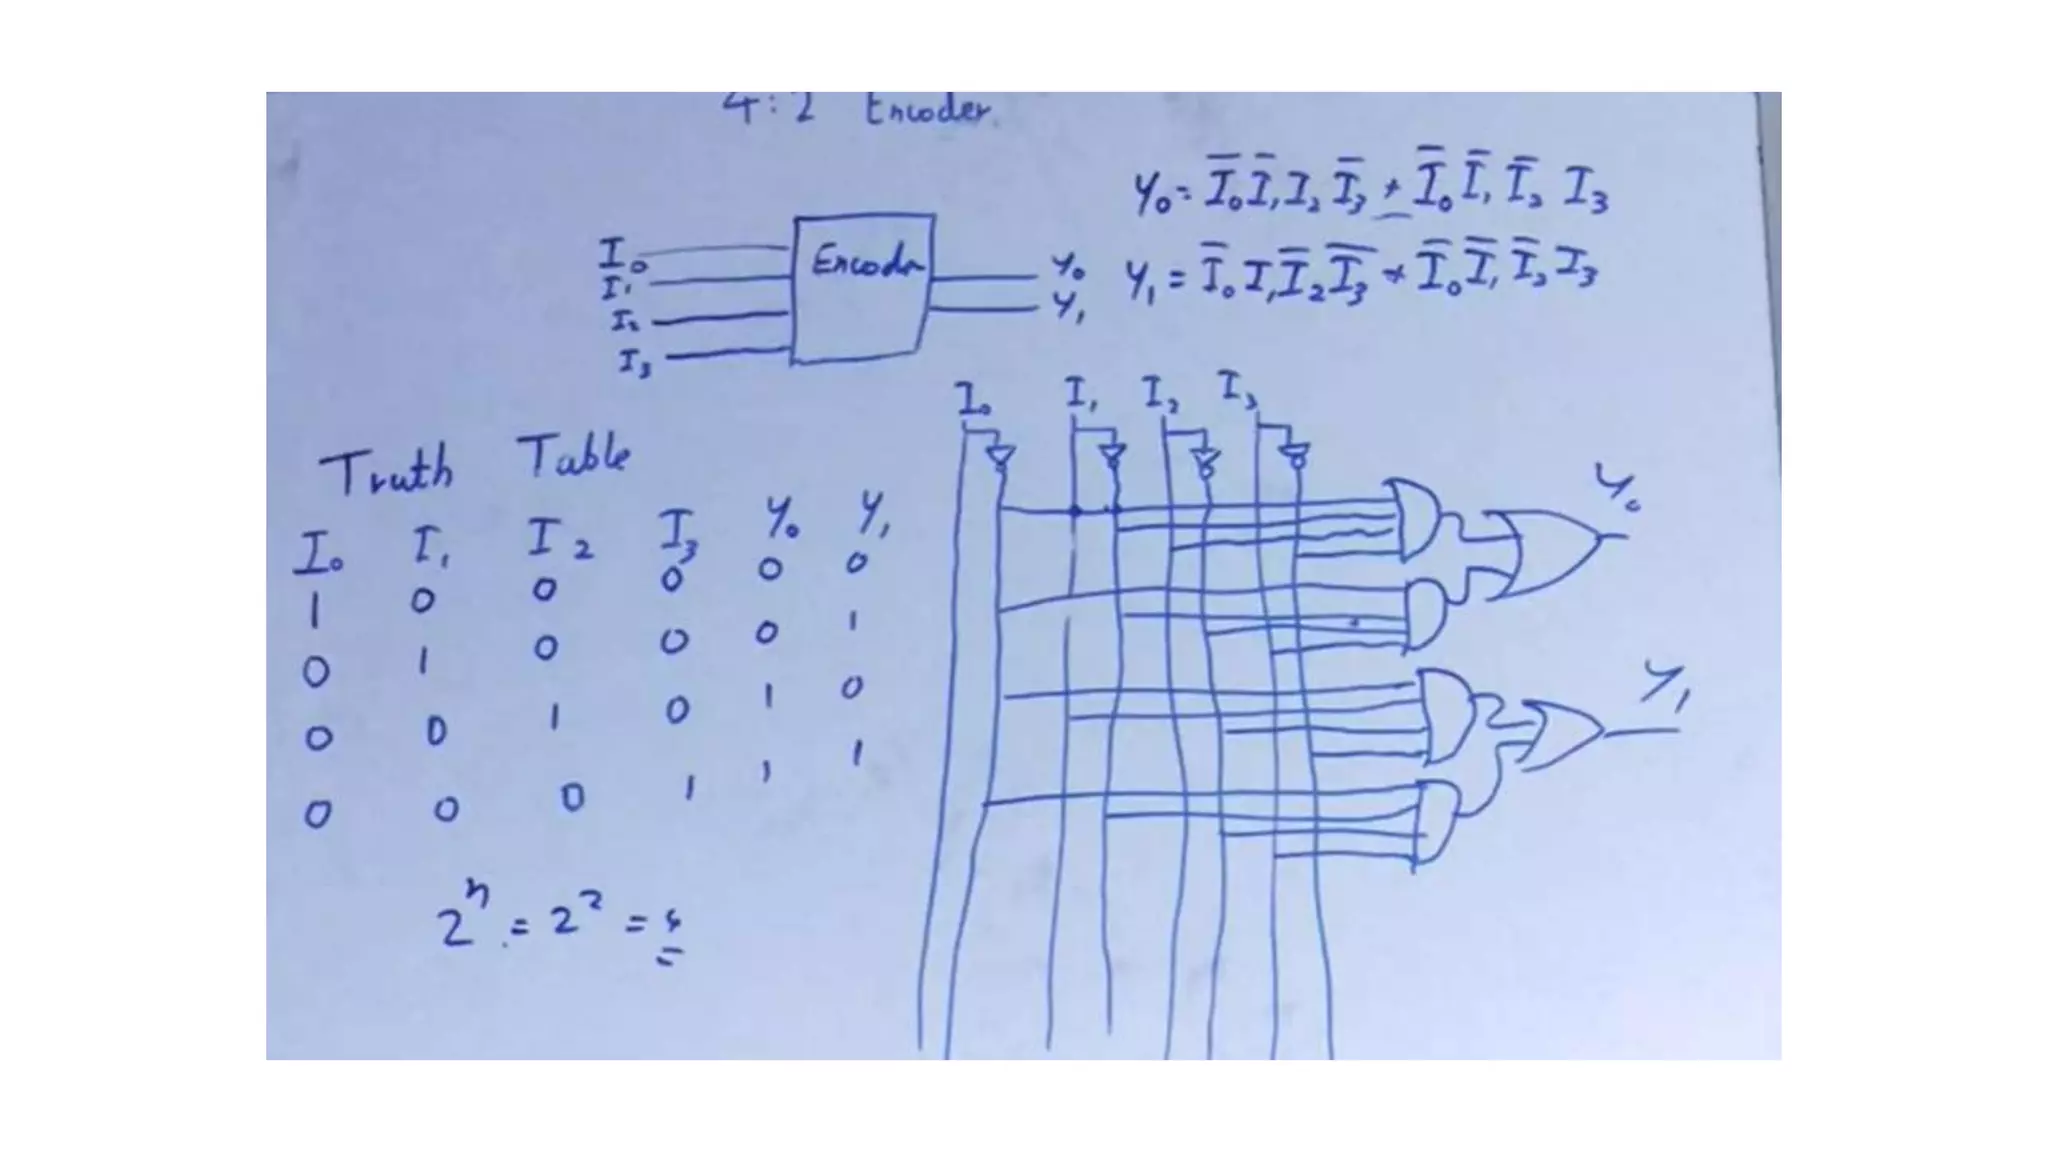 4:2 Encoder.
Y₀ = I̅₀ I̅₁ I₂ I̅₃ + I̅₀ I̅₁ I̅₂ I₃
Y₁ = I̅₀ I₁ I̅₂ I̅₃ + I̅₀ I̅₁ I̅₂ I₃
I₀
I₁
I₂
I₃
Encodr
Y₀
Y₁
I₀ I₁ I₂ I₃
Y₀
Y₁
Truth Table
I₀ I₁ I₂ I₃ Y₀ Y₁
1 0 0 0 0 0
0 1 0 0 0 1
0 0 1 0 1 0
0 0 0 1 1 1
2ⁿ = 2² = 4